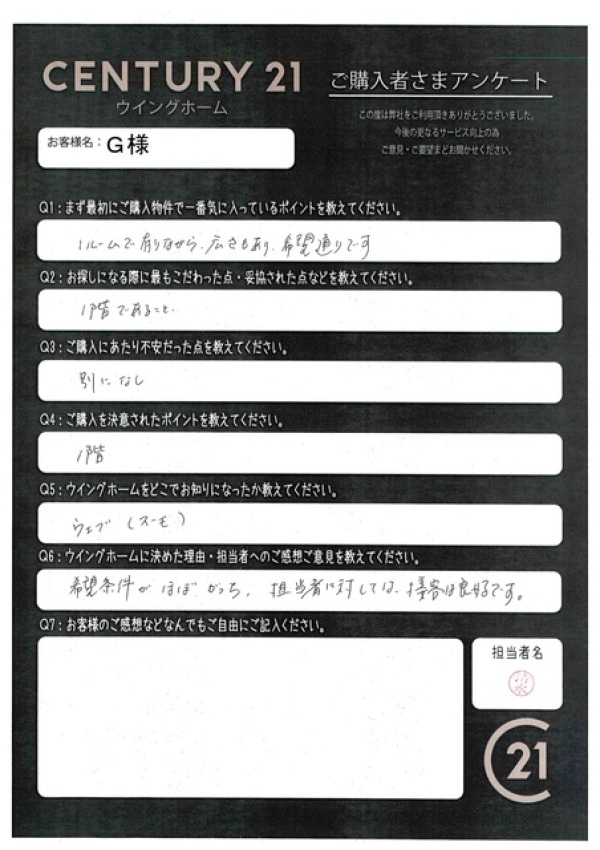 CENTURY 21
ウイングホーム
ご購入者さまアンケート
この度は弊社をご利用頂きありがとうございました。
今後の更なるサービス向上の為
ご意見・ご要望まどお聞かせください。
お客様名：G様
Q1：まず最初にご購入物件で一番気に入っているポイントを教えてください。
1ルームで有りながら、広さもあり、希望通りです
Q2：お探しになる際に最もこだわった点・妥協された点などを教えてください。
1階であること。
Q3：ご購入にあたり不安だった点を教えてください。
別になし
Q4：ご購入を決意されたポイントを教えてください。
1階
Q5：ウイングホームをどこでお知りになったか教えてください。
ウェブ（スーモ）
Q6：ウイングホームに決めた理由・担当者へのご感想ご意見を教えてください。
希望条件がほぼがっち、担当者に対しては、接客は良好です。
Q7：お客様のご感想などなんでもご自由にご記入ください。
担当者名
清水
C21